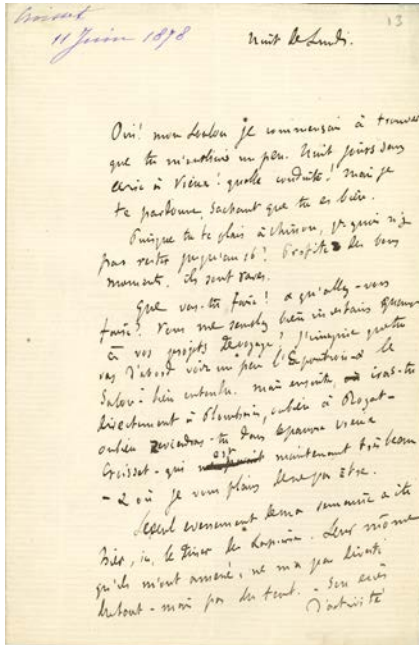 Croisset
11 Juin 1878
13
Nuit de Lundi.
Oui! mon Loulou je commençais à trouver
que tu m'oubliais un peu. Huit jours sans
écrire à Vieux! quelle conduite! mais je
te pardonne, sachant que tu es bien.
Puisque tu te plais à Chinon, pourquoi n'y
pas rester jusqu'au 16! Profite des bons
moments. ils sont rares.
Que vas-tu faire! & qu'allez-vous
faire? Vous me semblez bien incertains quant
à vos projets de voyage? J'imagine que tu
vas d'abord voir un peu l'Exposition & le
Salon bien entendu. mais ensuite, iras-tu
directement à Plombières, oubien à Royat-
oubien reviendras-tu dans le pauvre vieux
Croisset - qui est maintenant très beau
- & où je vous plains de ne pas être.
Le seul evenement de ma semaine a été
hier, ici, le dîner des Lapierre. Leur môme
qu'ils m'ont amené, ne m'a pas diverti
du tout - mais pas du tout. - Son excès
d'activité